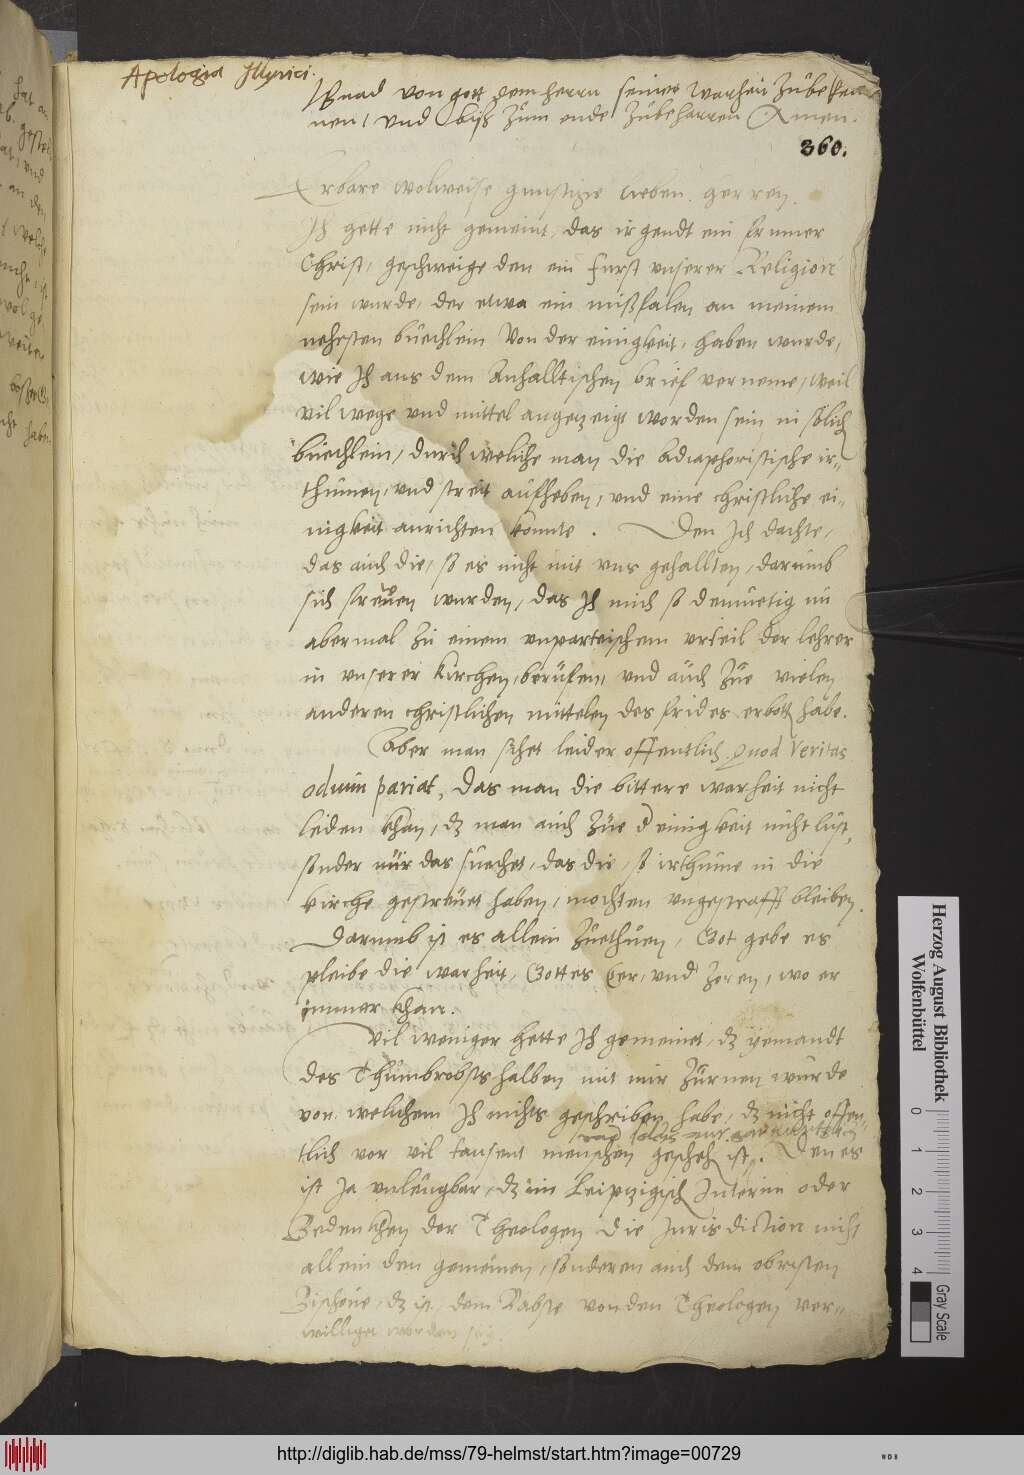 Apologia Illyrici.
Gnad von gott dem herrn seine warheit zubeken
nen, vnd biß zum ende zubeharren Amen.
360.
Erbare wolweise gunstige lieben herren.
Ich hette nicht gemeint, das irgendt ein frumer
Christ, geschweige den ein furst vnserer Religion
sein wurde, der etwa ein mißfalen an meinem
nehesten büechlein Von der einigkeit, haben wurde,
wie Ich aus dem Anhalltischen brief verneme, weil
vil wege vnd mittel angezeigt worden sein in solich
büechlein, durchweliche man die Adiaphoristische ir-
thumen, vnd streit aufheben, vnd eine christliche ei-
nigkeit anrichten konnte. Den Ich dachte,
das auch die, so es nicht mit vns gehallten, darumb
sich freuen wurden, das Ich mich so demuetig nu
abermal zu einem vnparteischem vrteil der lehrer
in vnserer kirchen, berüfen, vnd auch zue vielen
anderen christlichen mittelen des frides erbott habe.
Aber man sihet leider offentlich. Quod Veritas
odium pariat, Das man die bittere warheit nicht
leiden khan, dz man auch zue d einigkeit nicht lust,
sonder nür das suechet, das die, so irthume in die
kirche gestreuet haben, mochten vngestrafft bleiben.
Darumb ist es allein zuethuen, Got gebe es
pleibe die warheit, Gottes Eer, vnd wo er
immer khan.
Vil weniger hette Ich gemeinet, dz yemandt
des Thumbrobsts halben mit mir zürnen wurde
von welichem Ich nichts geschriben habe, dz nicht offen-
tlich vor vil tausent menschen gescheh ist. Den es
ist Ja vnleugbar, dz im Leipzigisch Interim oder
Bedencken der Theologen die Jurisdiction nicht
allein den gemeinen, sonderen auch dem obristen
Bischoue, dz ist, dem Babste von den Theologen ver-
williget worden sey.
Herzog August Bibliothek
Wolfenbüttel
0 1 2 3 4
Gray Scale
http://diglib.hab.de/mss/79-helmst/start.htm?image=00729